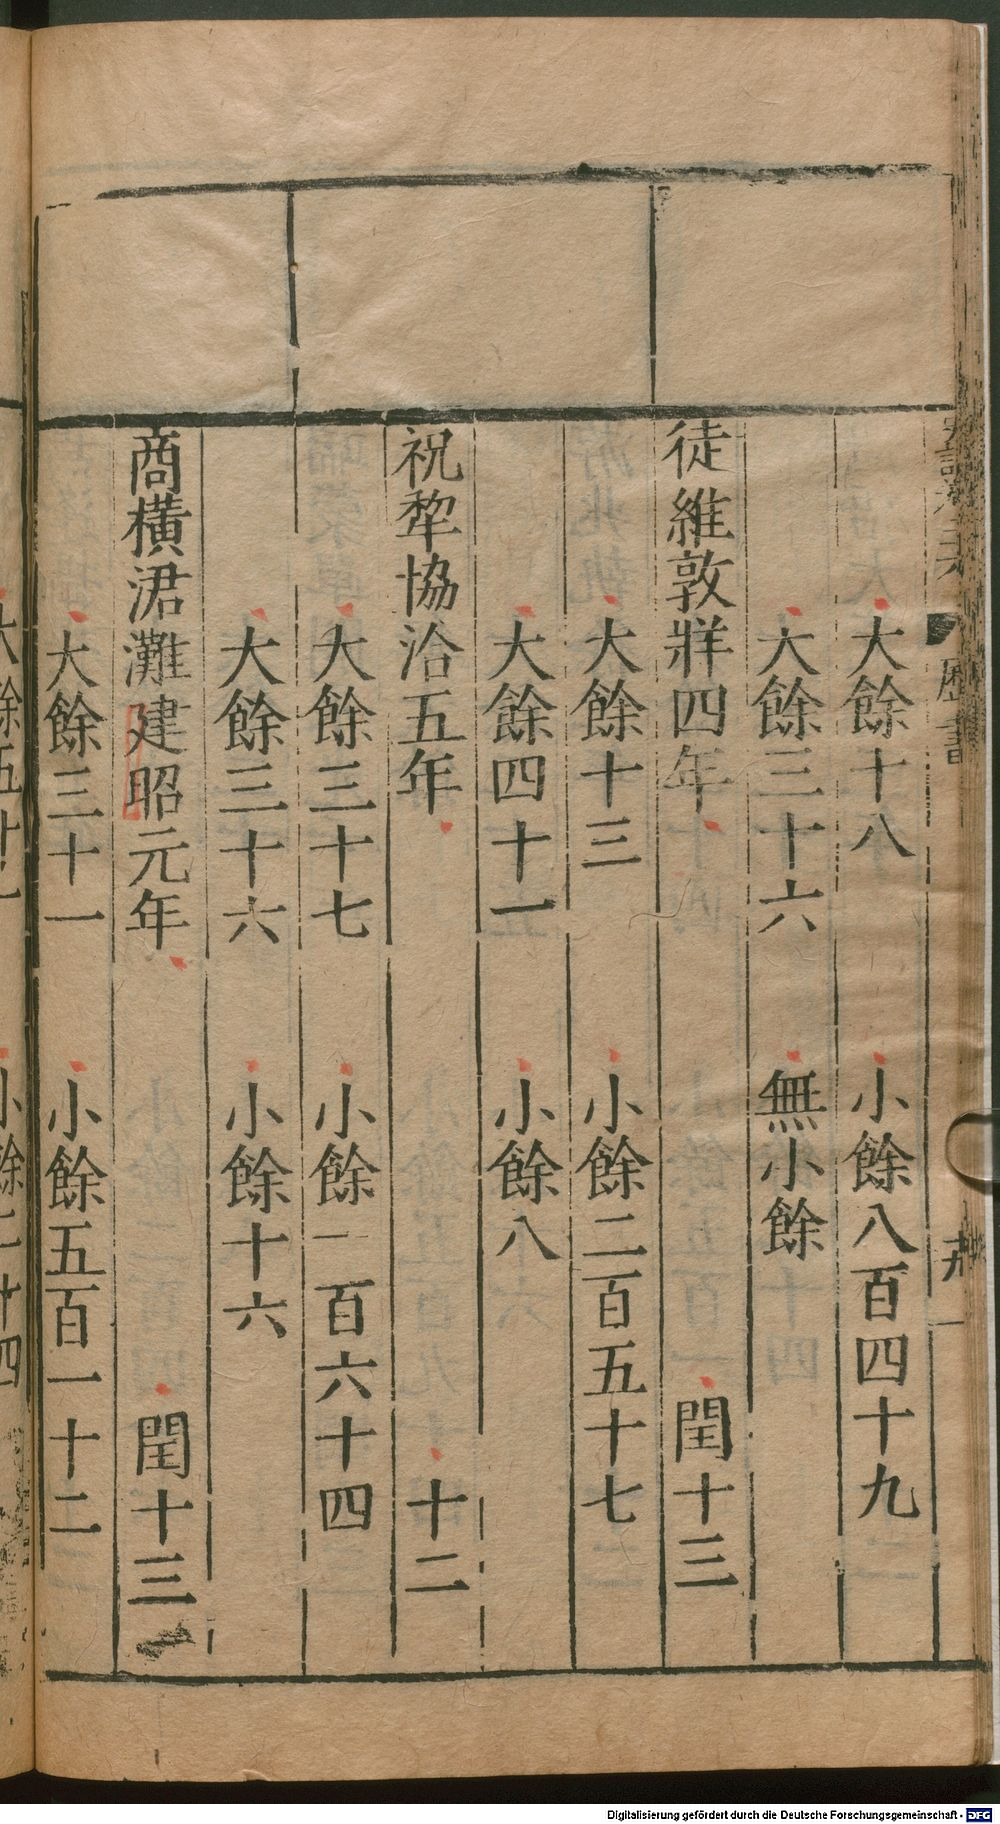 大餘十八 小餘八百四十九
大餘三十六 無小餘
徒維敦牂四年 閏十三
大餘十三 小餘二百五十七
大餘四十一 小餘八
祝犂協洽五年 十二
大餘三十七 小餘一百六十四
大餘三十六 小餘十六
商橫涒灘建昭元年 閏十三
大餘三十一 小餘五百一十二
Digitalisierung gefördert durch die Deutsche Forschungsgemeinschaft - DFG